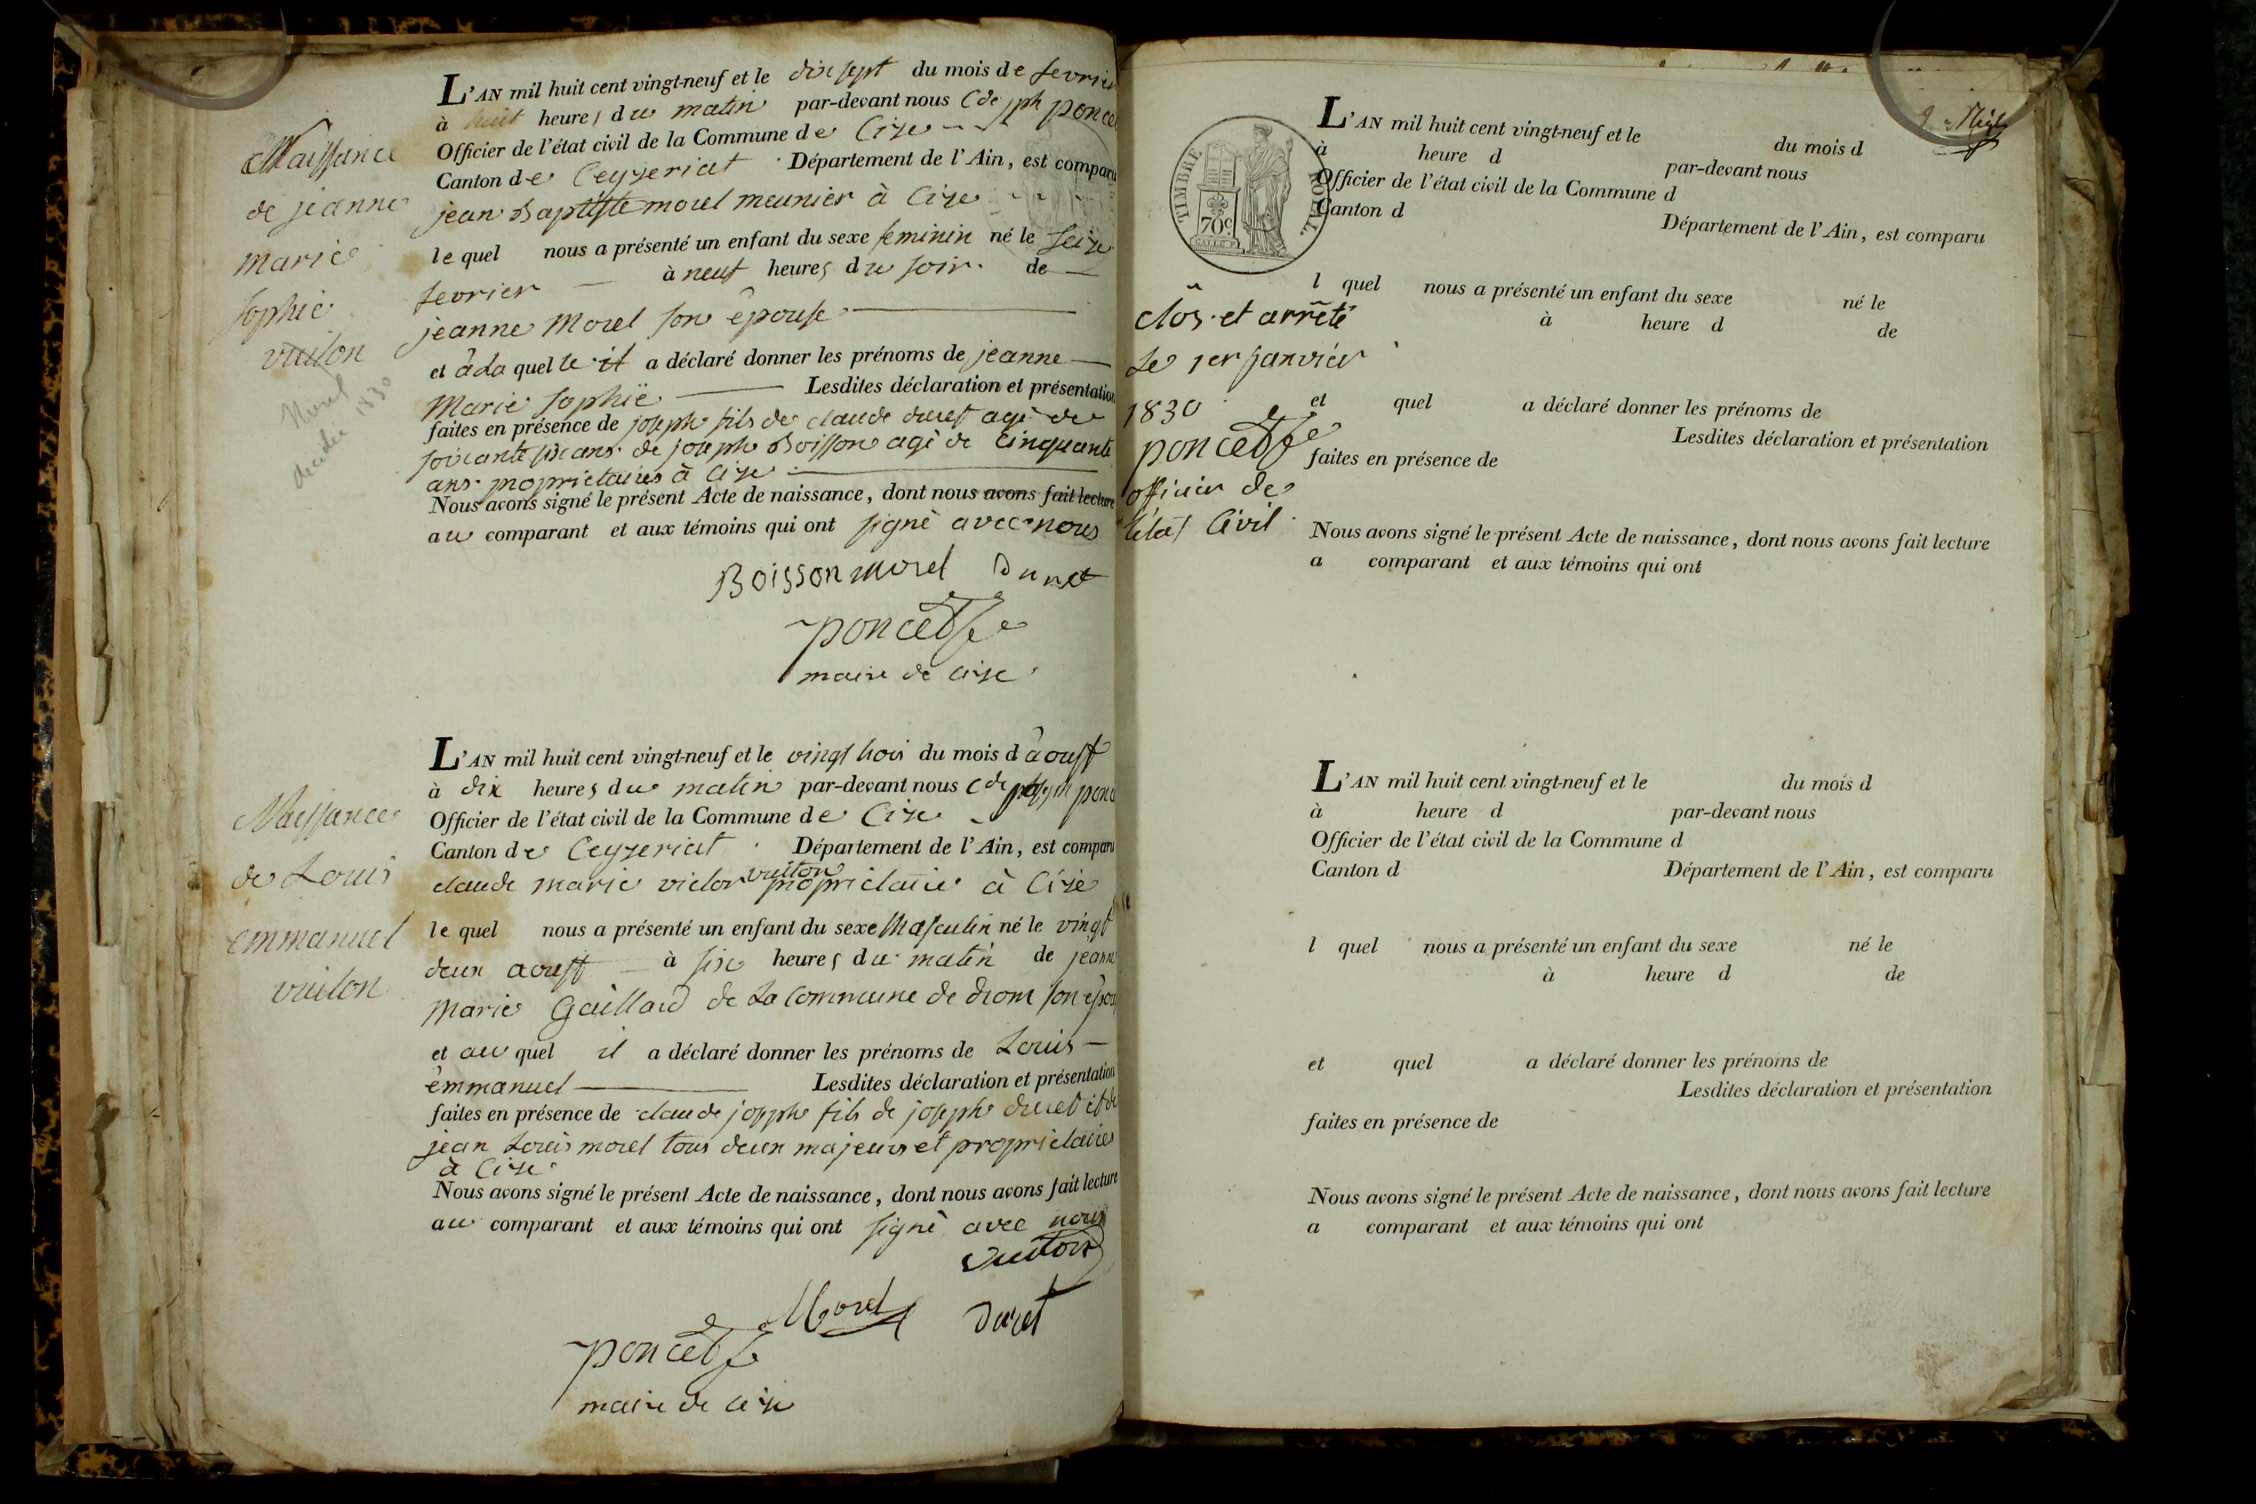 L'AN mil huit cent vingt-neuf et le dix sept du mois de fevrier
à huit heures du matin par-devant nous Cde jph ponce
Officier de l'état civil de la Commune de Cize
Canton de Ceyzeriat Département de l'Ain, est comparu
jean Baptiste morel meunier à Cize
le quel nous a présenté un enfant du sexe feminin né le seize
fevrier à neuf heures du soir de
jeanne Morel son épouse
et à la quelle il a déclaré donner les prénoms de jeanne
Marie Sophie Lesdites déclaration et présentation
faites en présence de joseph fils de claude duret agé de
soixante six ans de joseph Boisson agé de cinquante
ans proprietaires à Cize
Nous avons signé le présent Acte de naissance, dont nous avons fait lecture
au comparant et aux témoins qui ont signé avec nous
Boisson morel Duret
poncet
maire de cize
Naissance
de jeanne
marie
sophie
vuiton
Morel
1830
L'AN mil huit cent vingt-neuf et le vingt trois du mois d'aoust
à dix heures du matin par-devant nous Cde jph ponc
Officier de l'état civil de la Commune de Cize
Canton de Ceyzeriat Département de l'Ain, est comparu
vuiton
claude marie victor proprietaire à Cize
le quel nous a présenté un enfant du sexe Masculin né le vingt
deux aoust à six heures du matin de jeanne
Marie Gaillard de La Commune de drom son épou
et au quel il a déclaré donner les prénoms de Louis
emmanuel Lesdites déclaration et présentation
faites en présence de claude joseph fils de joseph duret et de
jean Louis morel tous deux majeurs et proprietaires
à Cize
Nous avons signé le présent Acte de naissance, dont nous avons fait lecture
au comparant et aux témoins qui ont signé avec nous
vuiton
Morel Duret
poncet
maire de cize
Naissance
de Louis
emmanuel
vuiton
TIMBRE ROYAL.
70c
clos et arrêté
Le 1er janvier
1830
poncet
officier de
l'état Civil
L'AN mil huit cent vingt-neuf et le du mois d
à heure d par-devant nous
Officier de l'état civil de la Commune d
Canton d Département de l'Ain, est comparu
l quel nous a présenté un enfant du sexe né le
à heure d de
et quel a déclaré donner les prénoms de
Lesdites déclaration et présentation
faites en présence de
Nous avons signé le présent Acte de naissance, dont nous avons fait lecture
a comparant et aux témoins qui ont
L'AN mil huit cent vingt-neuf et le du mois d
à heure d par-devant nous
Officier de l'état civil de la Commune d
Canton d Département de l'Ain, est comparu
l quel nous a présenté un enfant du sexe né le
à heure d de
et quel a déclaré donner les prénoms de
Lesdites déclaration et présentation
faites en présence de
Nous avons signé le présent Acte de naissance, dont nous avons fait lecture
a comparant et aux témoins qui ont